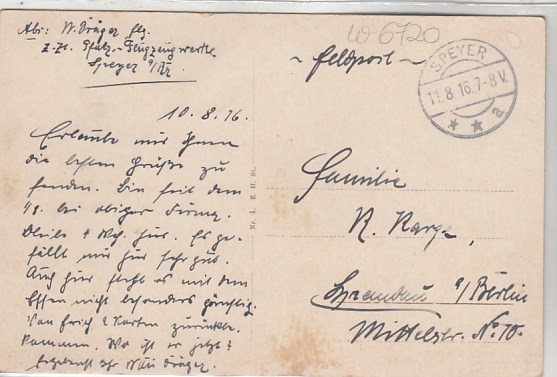 Abs: W. Dräger Flg.
z. Zt. Pfalz-Flugzeugwerke
Speyer a/Rh.
10. 8. 16.
Erlaube mir Ihnen
die besten Grüße zu
senden. Bin seit dem
1/8. bei obiger Firma.
Bleibe 4 Wch. hier. Es ge-
fällt mir hier sehr gut.
Auch hier steht es mit dem
Essen nicht besonders günstig.
Von Erich 2 Karten zurückbe-
kommen. Wo ist er jetzt?
Ergebenst Ihr Dräger.
W 6720
Feldpost
SPEYER
11.8.16.7-8V.
a
Familie
R. Karge,
Spandau b/Berlin
Mittelstr. No. 10.